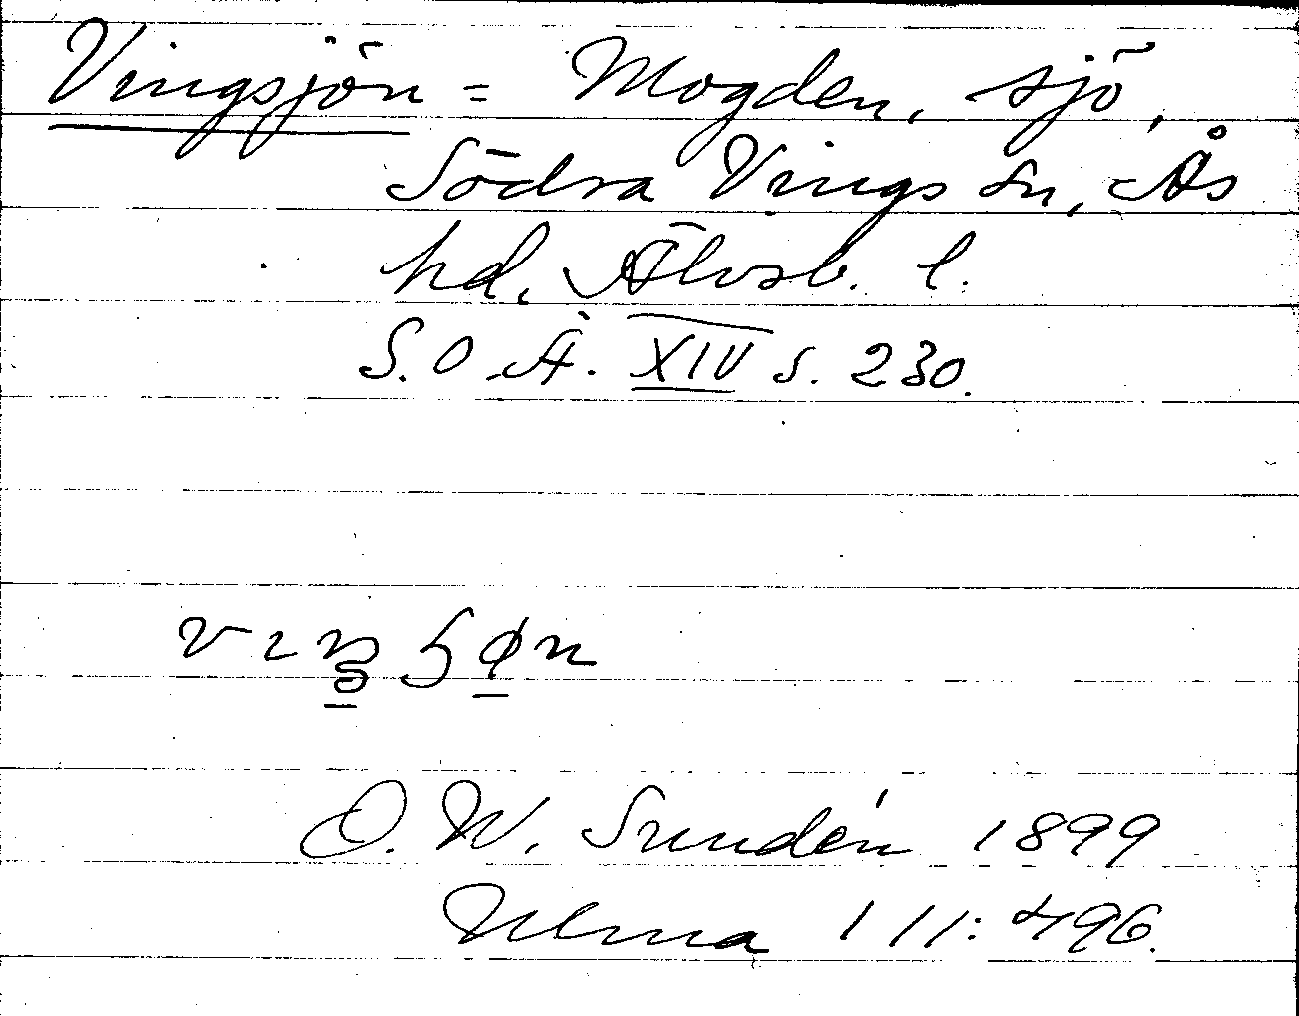 Vingsjön = Mogden, sjö,
Södra Vings sn, Ås
hd. Älvsb. l.
S. O. Ä. XIV s. 230.
O. W. Sundén 1899
Ulma 111:496.